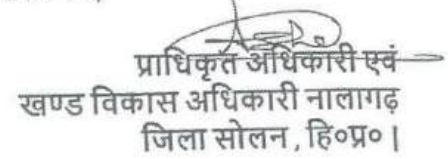 प्राधिकृत अधिकारी एवं
खण्ड विकास अधिकारी नालागढ़
जिला सोलन , हि०प्र० |